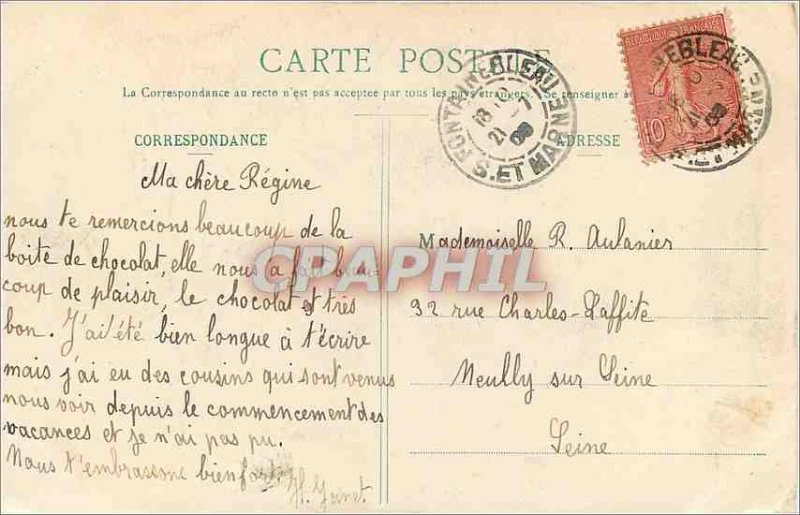 CARTE POSTALE
La Correspondance au recto n'est pas acceptée par tous les pays étrangers. (Se renseigner à
CORRESPONDANCE
Ma chère Régine
nous te remercions beaucoup de la
boite de chocolat, elle nous a fait beau-
coup de plaisir, le chocolat et très
bon. J'ai été bien longue à t'écrire
mais j'ai eu des cousins qui sont venus
nous voir depuis le commencement des
vacances et je n'ai pas pu.
Nous t'embrassons bien fort.
ADRESSE
Mademoiselle R. Aulanier
92 rue Charles-Laffite
Neuilly sur Seine
Seine
FONTAINEBLEAU
S. ET MARNE
REPUBLIQUE FRANÇAISE
10c
CPAPHIL